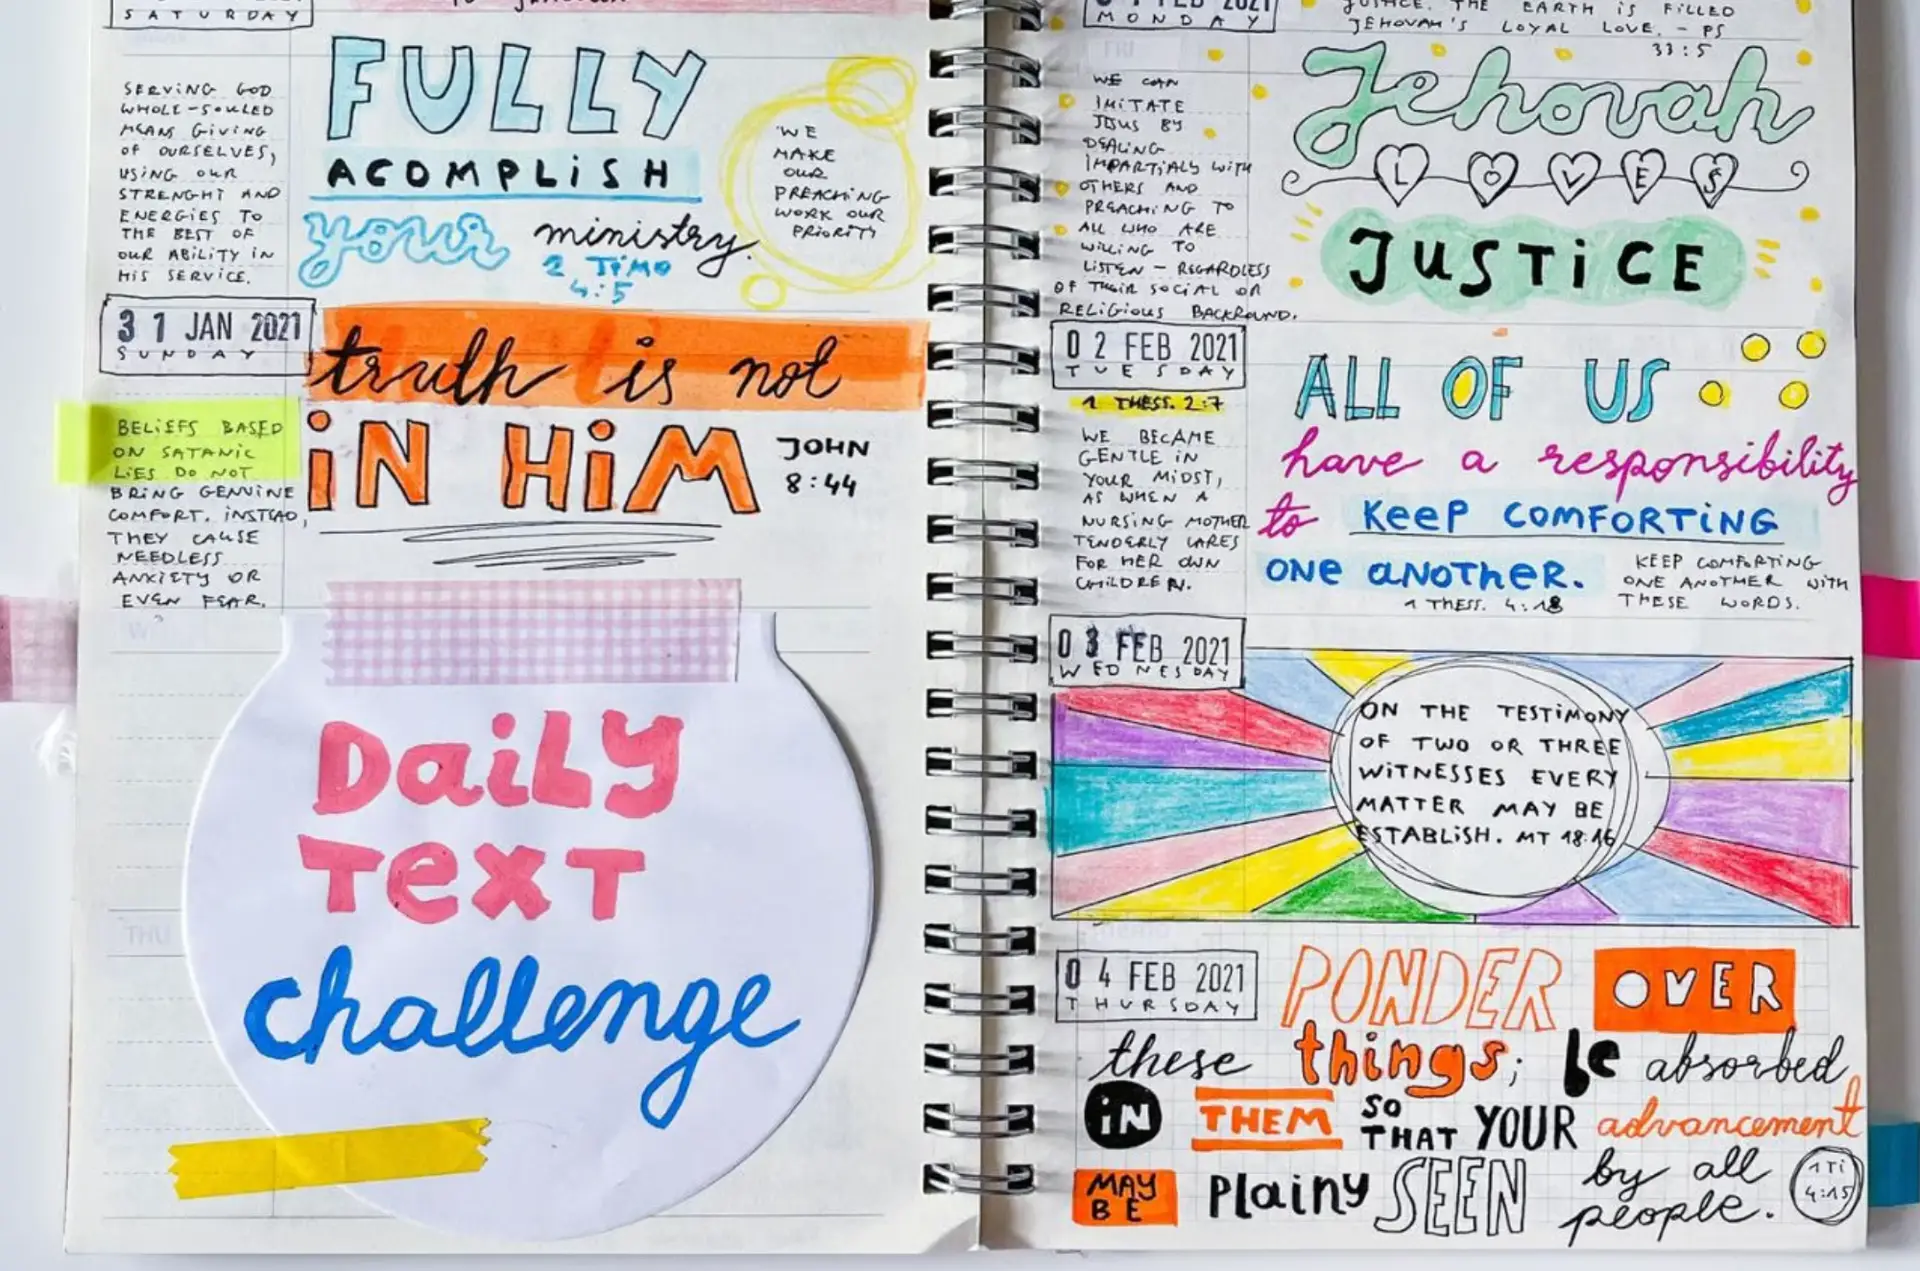 SATURDAY
SERVING GOD
WHOLE-SOULED
MEANS GIVING
OF OURSELVES,
USING OUR
STRENGHT AND
ENERGIES TO
THE BEST OF
OUR ABILITY IN
HIS SERVICE.
FULLY
ACOMPLISH
your ministry.
2 TIMO
4:5
WE
MAKE
OUR
PREACHING
WORK OUR
PRIORITY
31 JAN 2021
SUNDAY
BELIEFS BASED
ON SATANIC
LIES DO NOT
BRING GENUINE
COMFORT. INSTEAD,
THEY CAUSE
NEEDLESS
ANXIETY OR
EVEN FEAR.
truth is not
IN HIM
JOHN
8:44
DAILY
TEXT
challenge
FEB 2021
MONDAY
JUSTICE. THE EARTH IS FILLED
JEHOVAH'S LOYAL LOVE. - PS
33:5
WE CAN
IMITATE
JESUS BY
DEALING
IMPARTIALY WITH
OTHERS AND
PREACHING TO
ALL WHO ARE
WILLING TO
LISTEN - REGARDLESS
OF THEIR SOCIAL OR
RELIGIOUS BACKROUND.
Jehovah
LOVES
JUSTICE
02 FEB 2021
TUESDAY
1 THESS. 2:7
WE BECAME
GENTLE IN
YOUR MIDST,
AS WHEN A
NURSING MOTHER
TENDERLY CARES
FOR HER OWN
CHILDREN.
ALL OF US
have a responsibility
to KEEP COMFORTING
ONE ANOTHER.
1 THESS. 4:18
KEEP COMFORTING
ONE ANOTHER WITH
THESE WORDS.
03 FEB 2021
WEDNESDAY
ON THE TESTIMONY
OF TWO OR THREE
WITNESSES EVERY
MATTER MAY BE
ESTABLISH. MT 18:16
04 FEB 2021
THURSDAY
PONDER OVER
these things; be absorbed
IN THEM SO THAT YOUR advancement
MAY BE PLAINY SEEN by all people.
1 TI
4:15